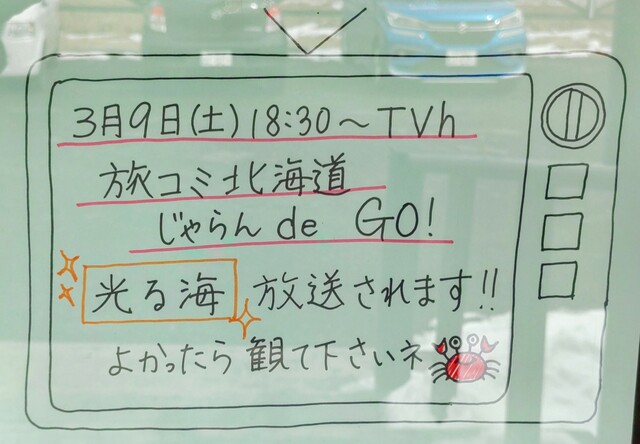 3月9日(土)18:30～TVh
旅コミ北海道
じゃらん de GO!
光る海 放送されます!!
よかったら 観て下さいネ